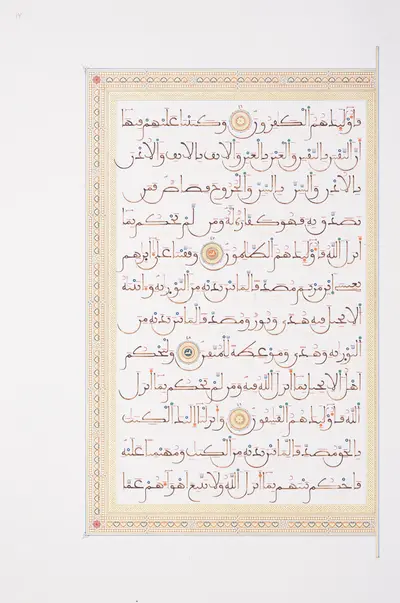 فأولئك هم الكفرون وكتبنا عليهم فيها
أن النفس بالنفس والعين بالعين والانف بالانف والاذن
بالاذن والسن بالسن والجروح قصاص فمن
تصدق به فهو كفارة له ومن لم يحكم بما
أنزل الله فأولئك هم الظلمون وقفينا على ءاثرهم
بعيسى ابن مريم مصدقا لما بين يديه من التورية وءاتينه
الانجيل فيه هدى ونور ومصدقا لما بين يديه من
التورية وهدى وموعظة للمتقين وليحكم
أهل الانجيل بما أنزل الله فيه ومن لم يحكم بما أنزل
الله فأولئك هم الفسقون وأنزلنا إليك الكتب
بالحق مصدقا لما بين يديه من الكتب ومهيمنا عليه
فاحكم بينهم بما أنزل الله ولا تتبع أهواءهم عما